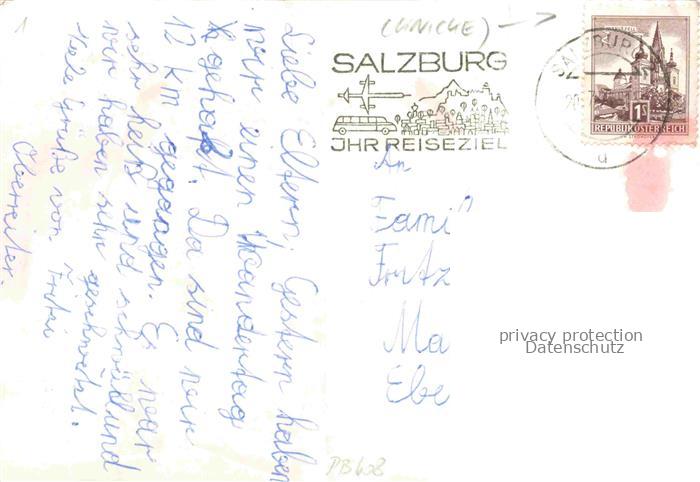 Liebe Eltern! Gestern haben
wir einen Wandertag
gehabt. Da sind wir
12 km gegangen. Es war
sehr heiß und schwül und
wir haben sehr geschwitzt.
Viele Grüße von Fritzi
Oberreiter.
1
SALZBURG
JHR REISEZIEL
SALZBURG
20.
d
1S
REPUBLIK ÖSTERREICH
An
Fami
Fritz
Ma
Ebe
privacy protection
Datenschutz
PB608